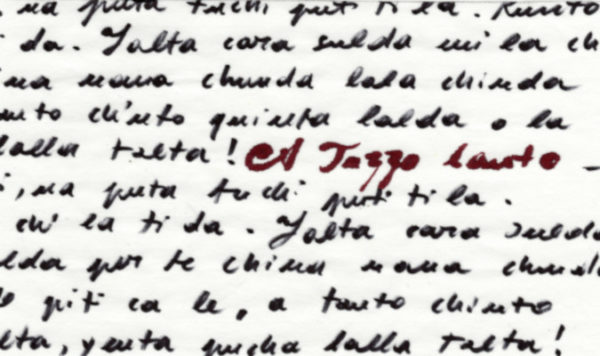 , na puta tuchi puti ti la. Kunto
i da. Yalta cara sulda mi la ch
ina nana chunda lala chinda
unto ch'nto quinta lalda o la
lalla talta! A Tazzo lanto -
i, na puta tuchi puti ti la.
chi la ti da. Yalta cara sulda
lda per te china nana chunda
piti ca le, a tanto chinto
lta, yenta pucha lalla talta!